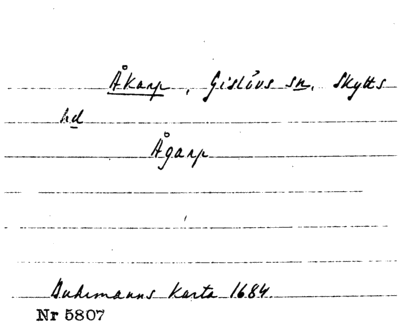 Åkarp, Gislövs sn, Skytts
hd
Ågarp
Buhrmanns Karta 1684.
Nr 5807